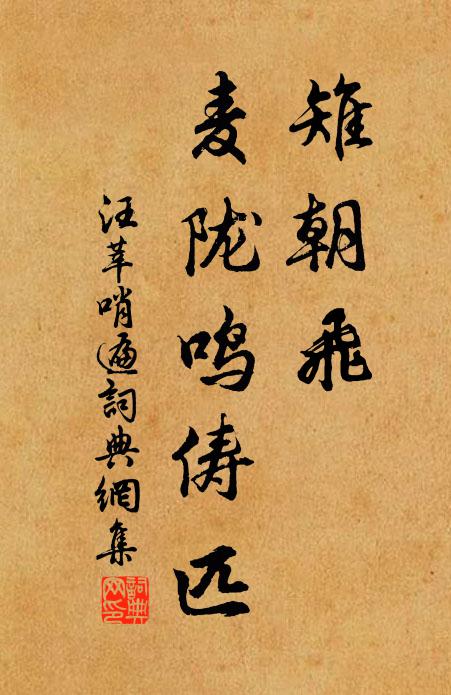 雉朝飞
麦陇鸣俦匹
汪莘哨遍詞典網集
詞典网印